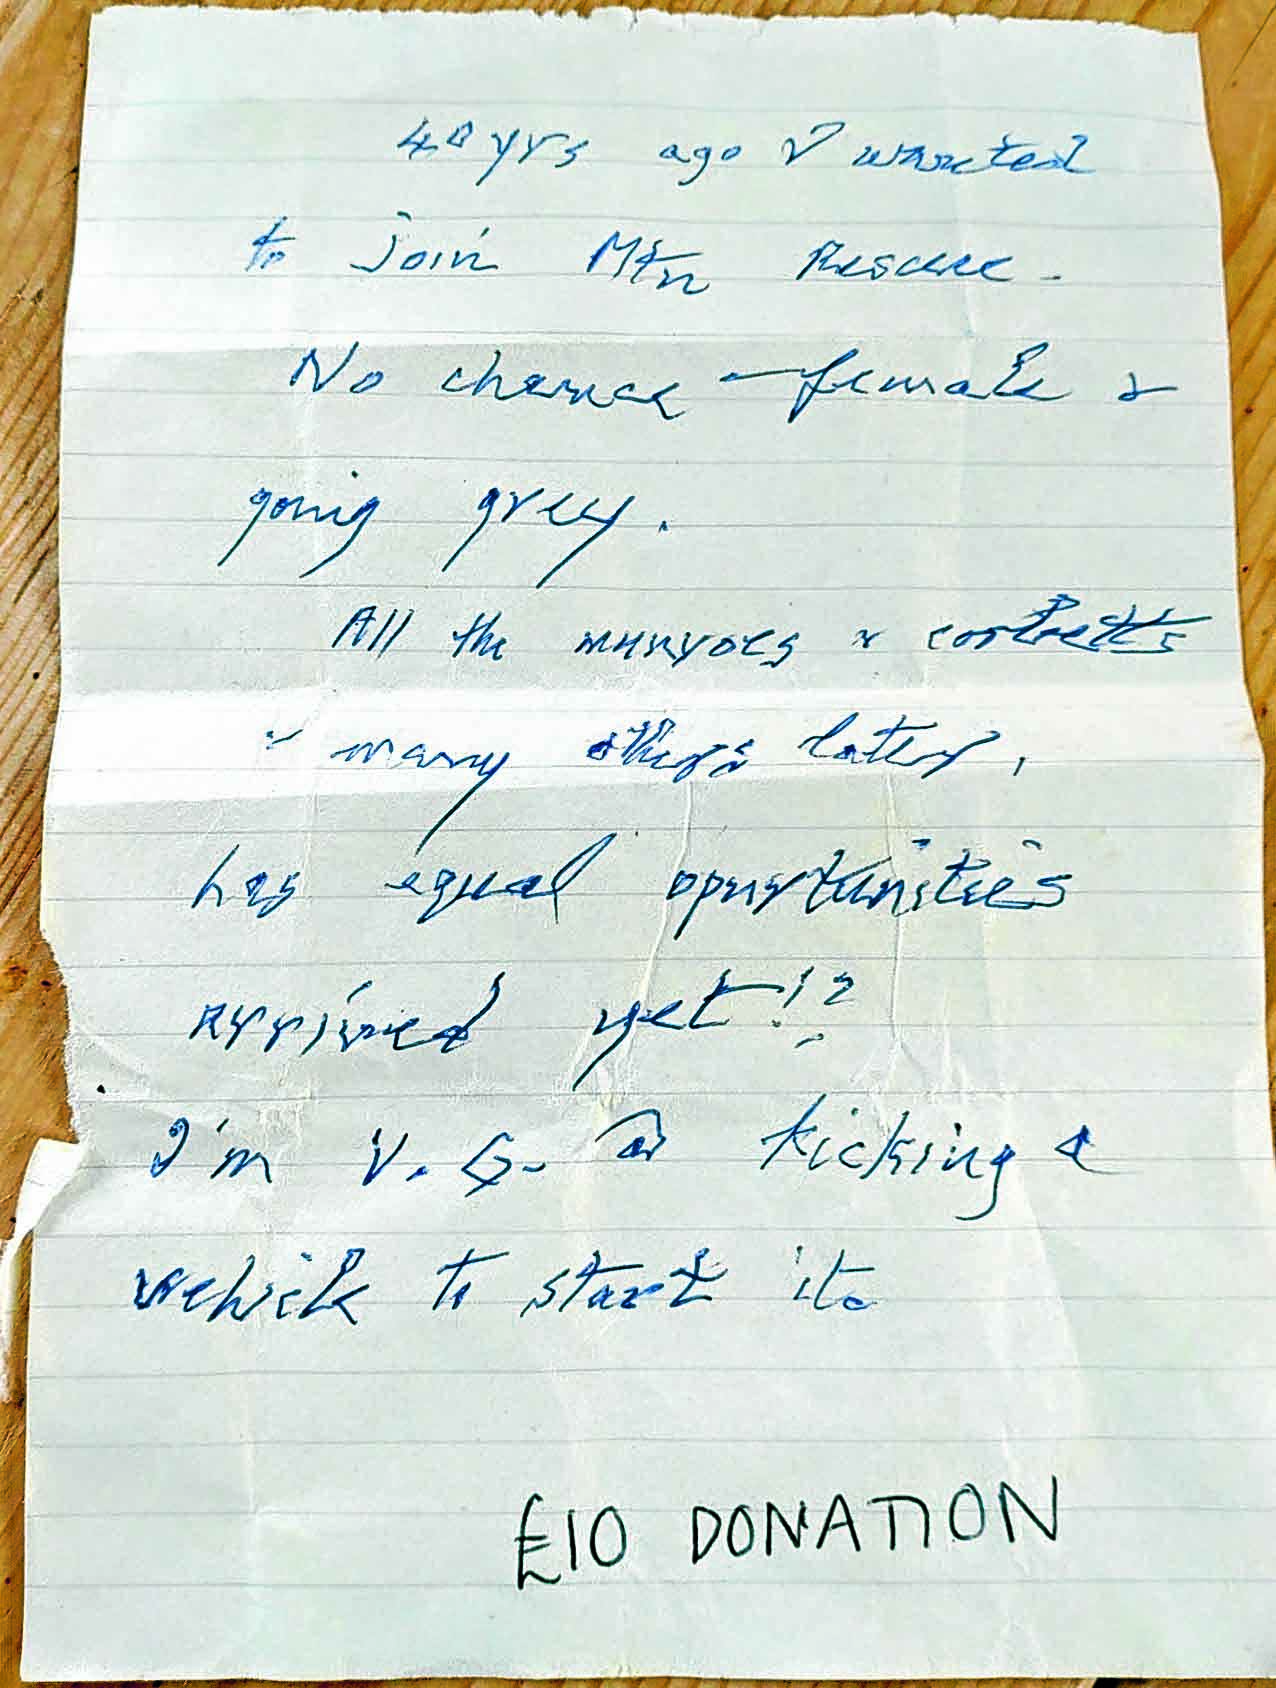 40 yrs ago I wanted
to join Mtn Rescue -
No chance - female &
going grey.
All the munroes & corbetts
& many others later,
has equal oportunities
arrived yet!?
I'm V. G. @ kicking a
vehicle to start it.
£10 DONATION